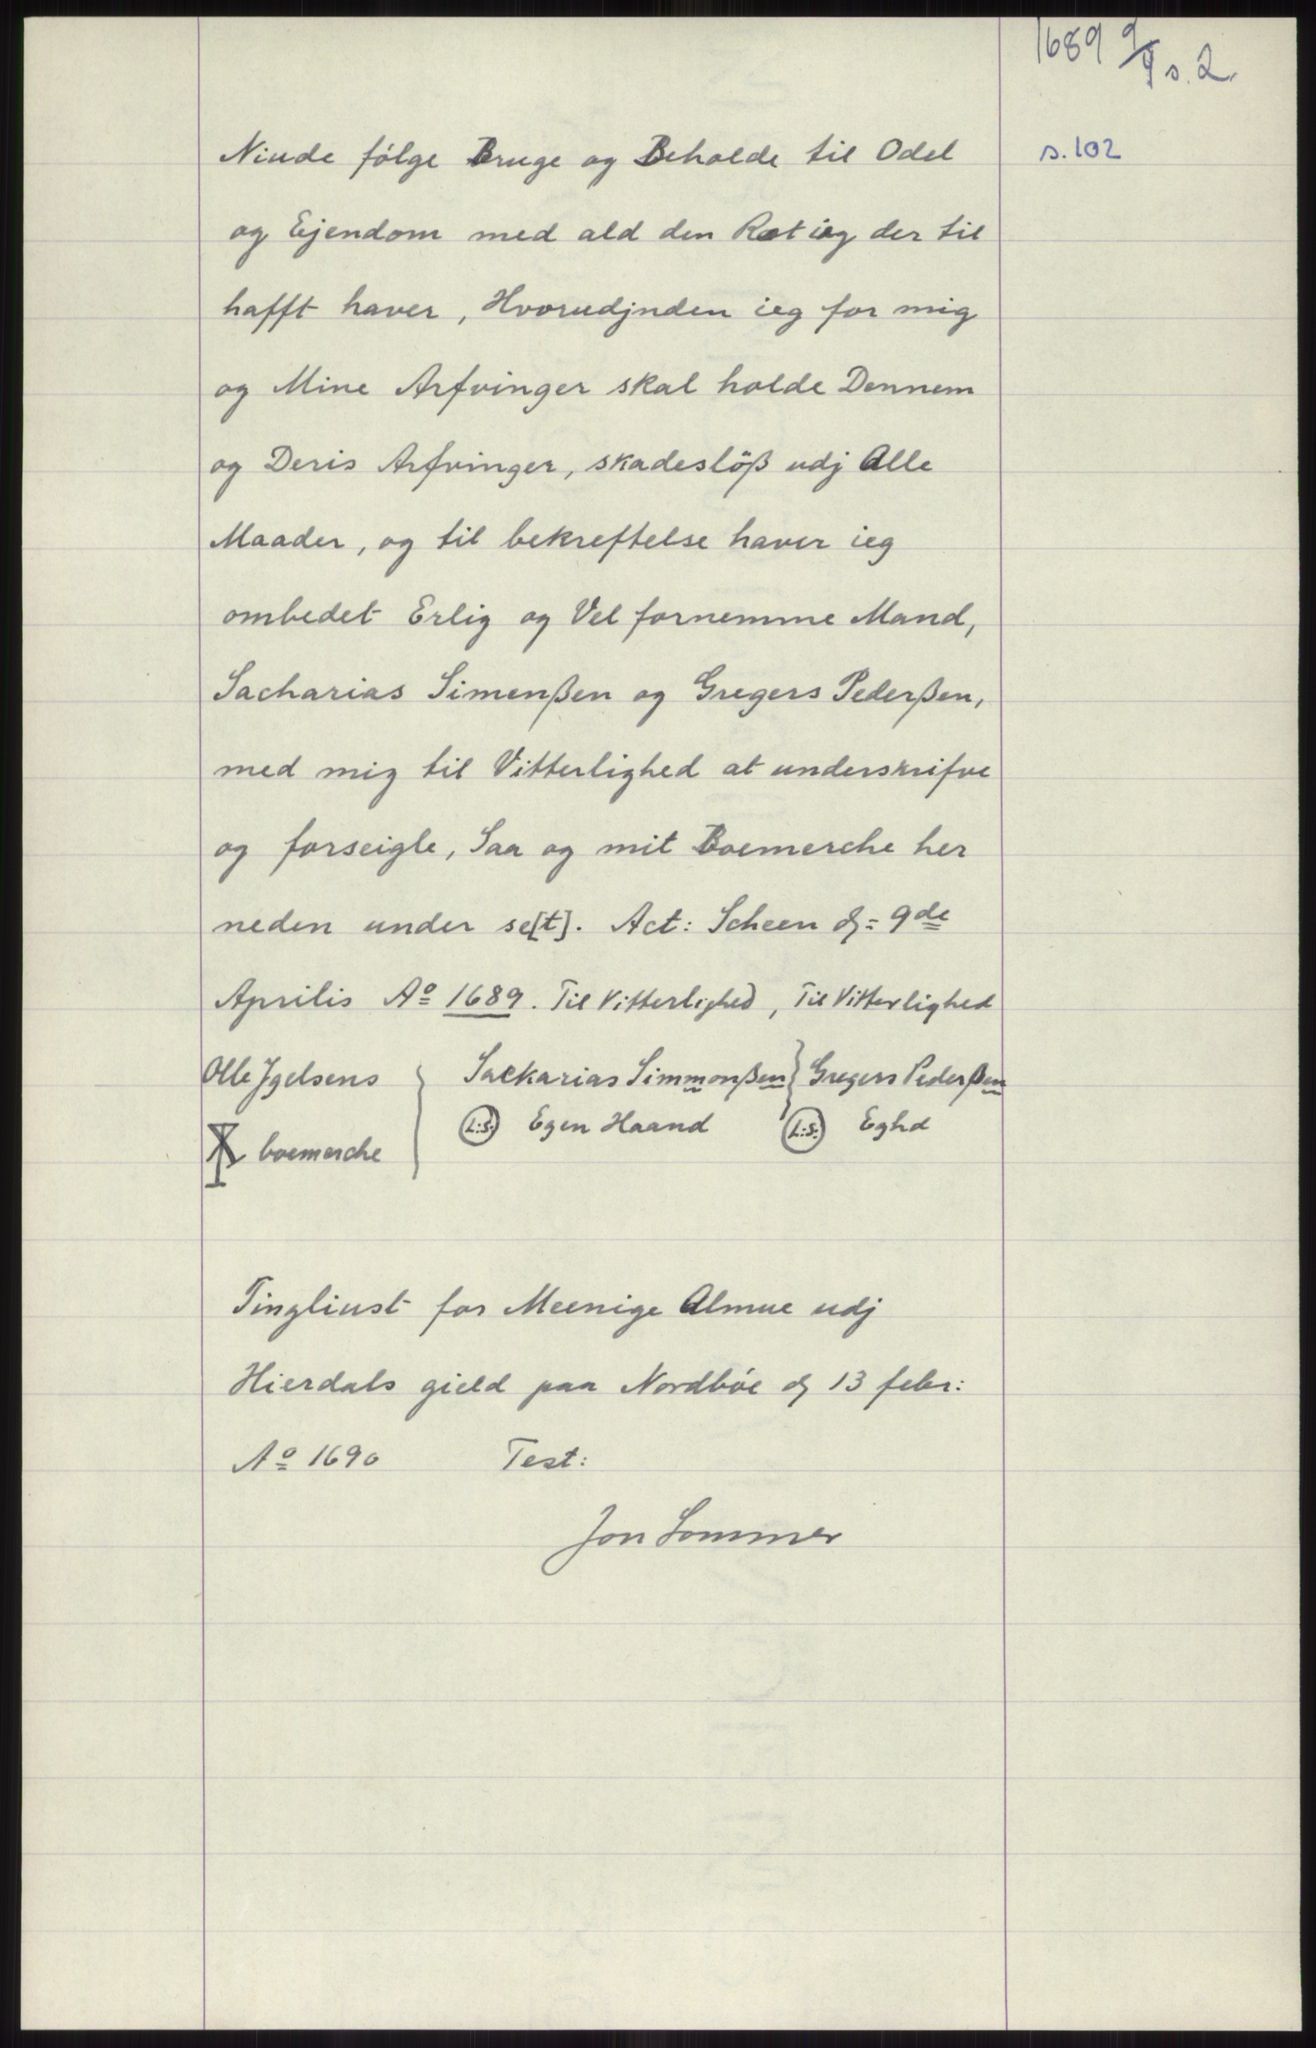 1689 9/4 s. 2.
s. 102
Niude følge Bruge og Beholde til Odel
og Ejendom med ald den Ret ieg der til
hafft haver, Hvorudjnden ieg for mig
og Mine Arfvinger skal holde Dennem
og Deris Arfvinger, skadesløß udj Alle
Maader, og til bekreftelse haver ieg
ombedet Erlig og Vel fornemme Mand,
Sacharias Simenßen og Gregers Pederßen,
med mig til Vitterlighed at underskrifve
og forseigle, Saa og mit Boemerche her
neden under se[t]. Act: Scheen d: 9de
Aprilis Ao 1689. Til Vitterlighed, Til Vitterlighed
Olle Jgelsens Sackarias Simmonßen Gregers Pederßen
L:S. Egen Haand L:S. Eghd
boemerche
Tingliust for Meenige Almue udj
Hierdals gield paa Nordbøe d 13 febr:
Ao 1690 Test:
Jon Sommer